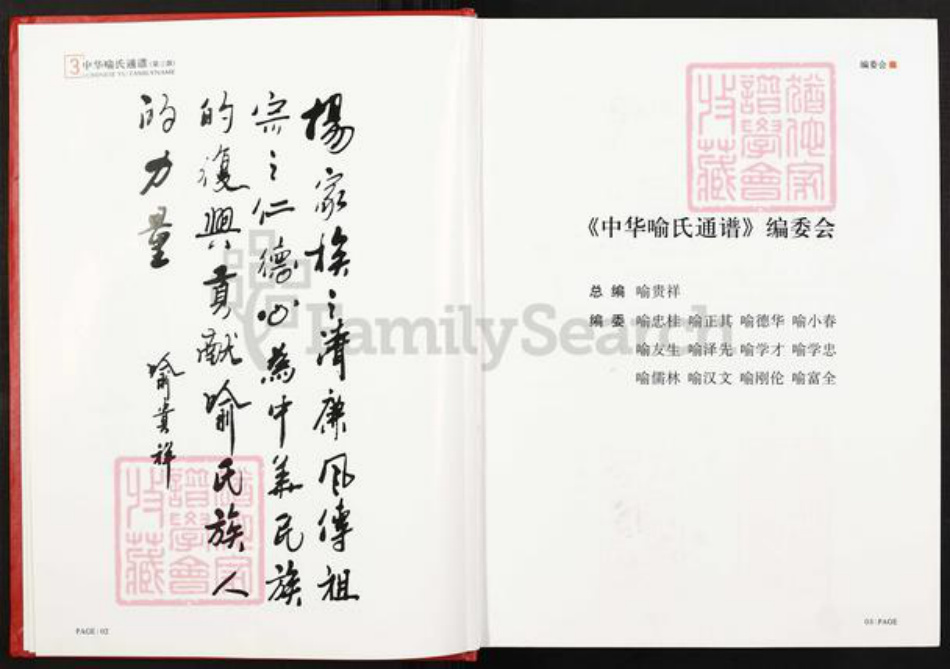 3 中华喻氏通谱(第三部)
CHINESE YU FAMILYNAME
楊家族之清廉风傳祖
宗之仁德心為中美民族
的復興貢献喻氏族人
的力量
喻貴祥
PAGE / 02
FamilySearch
编委会
《中华喻氏通谱》编委会
总 编 喻贵祥
编 委 喻忠桂 喻正其 喻德华 喻小春
喻友生 喻泽先 喻学才 喻学忠
喻儒林 喻汉文 喻刚伦 喻富全
03 / PAGE